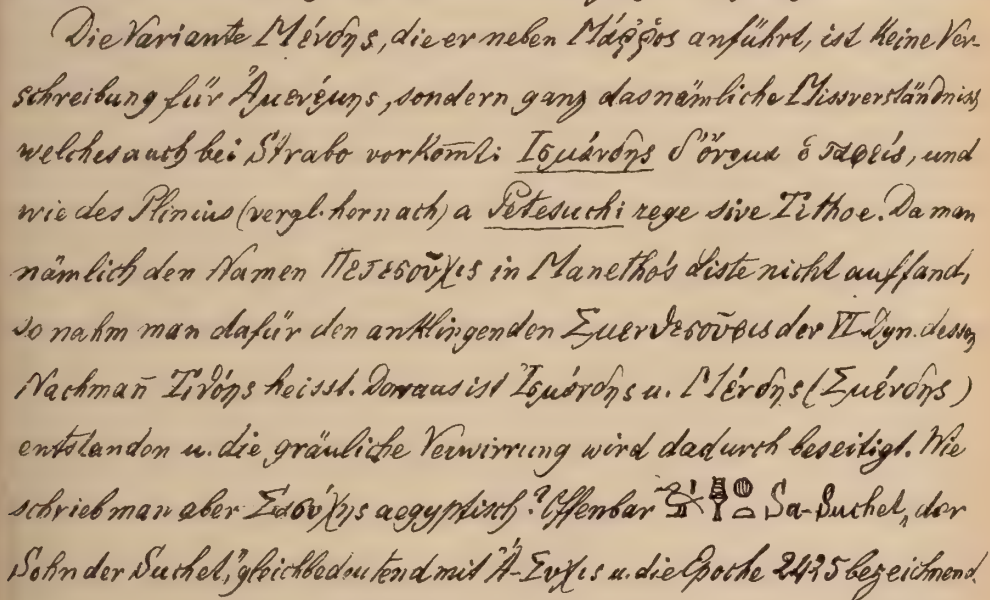 Die Variante Μένδης, die er neben Μάῤῥος anführt, ist keine Ver-
schreibung für Ἀμενέμης, sondern ganz das nämliche Missverständniss,
welches auch bei Strabo vorkom̄t: Ἰσμάνδης δ'ὄνομα ὁ ταφείς, und
wie des Plinius (vergl. hernach) a Petesuchi rege sive Tithoe. Da man
nämlich den Namen Πετεσοῦχις in Manetho's Liste nicht auffand,
so nahm man dafür den anklingenden der VI Dyn. dessen
Nachman̄ heisst. Daraus ist Ἰσμάνδης u. Μένδης (Σμένδης)
entstanden u. die gräuliche Verwirrung wird dadurch beseitigt. Wie
schrieb man aber Σασύχης aegyptisch? Offenbar Sa-Suchet, „der
Sohn der Suchet," gleichbedeutend mit Ἀ-Συχις u. die Epoche 2425 bezeichnend.